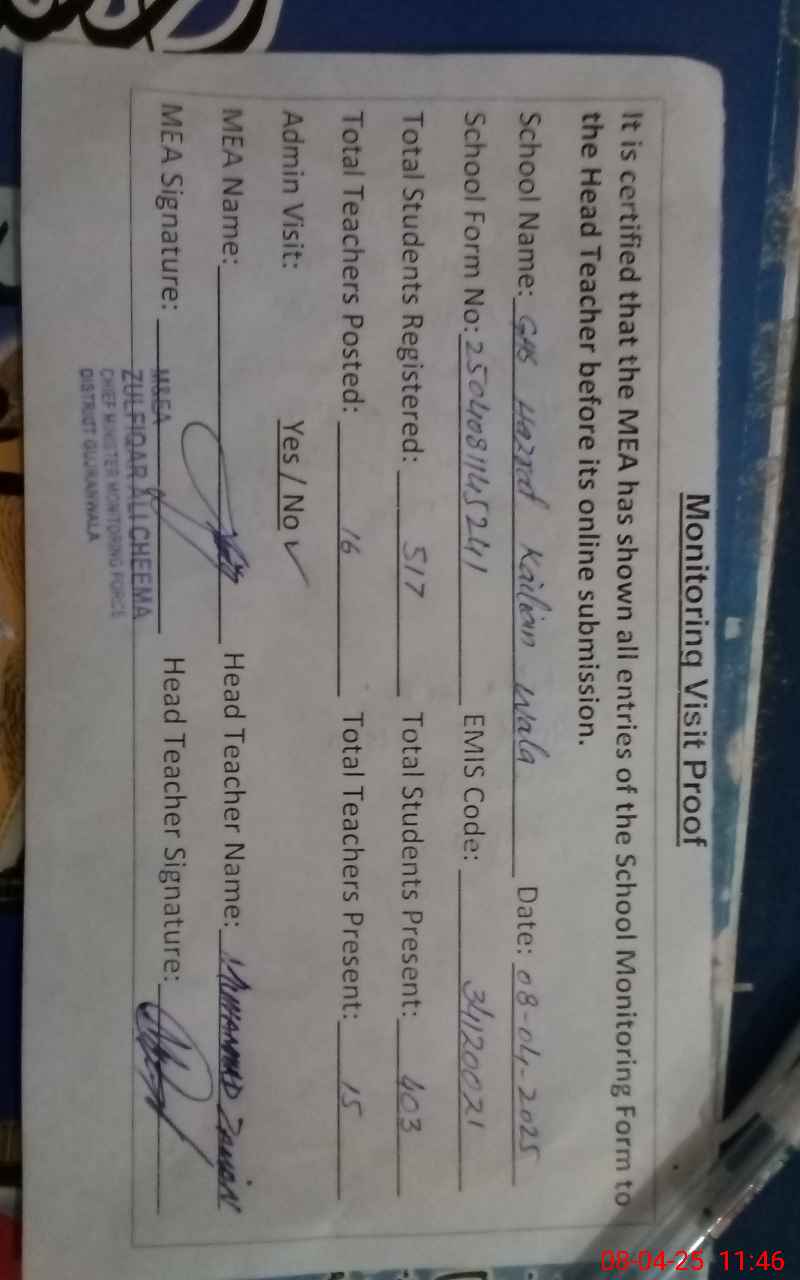 Monitoring Visit Proof
It is certified that the MEA has shown all entries of the School Monitoring Form to
the Head Teacher before its online submission.
School Name: GHS Hazrat Kailian Wala Date: 08-04-2025
School Form No: 2504081145241 EMIS Code: 34120021
Total Students Registered: 517 Total Students Present: 403
Total Teachers Posted: 16 Total Teachers Present: 15
Admin Visit: Yes / No ✓
MEA Name: Head Teacher Name: MUHAMMAD Zaman
MEA Signature: Head Teacher Signature:
M&EA
ZULFIQAR ALI CHEEMA
CHIEF MINISTER MONITORING FORCE
DISTRICT GUJRANWALA
08-04-25 11:46